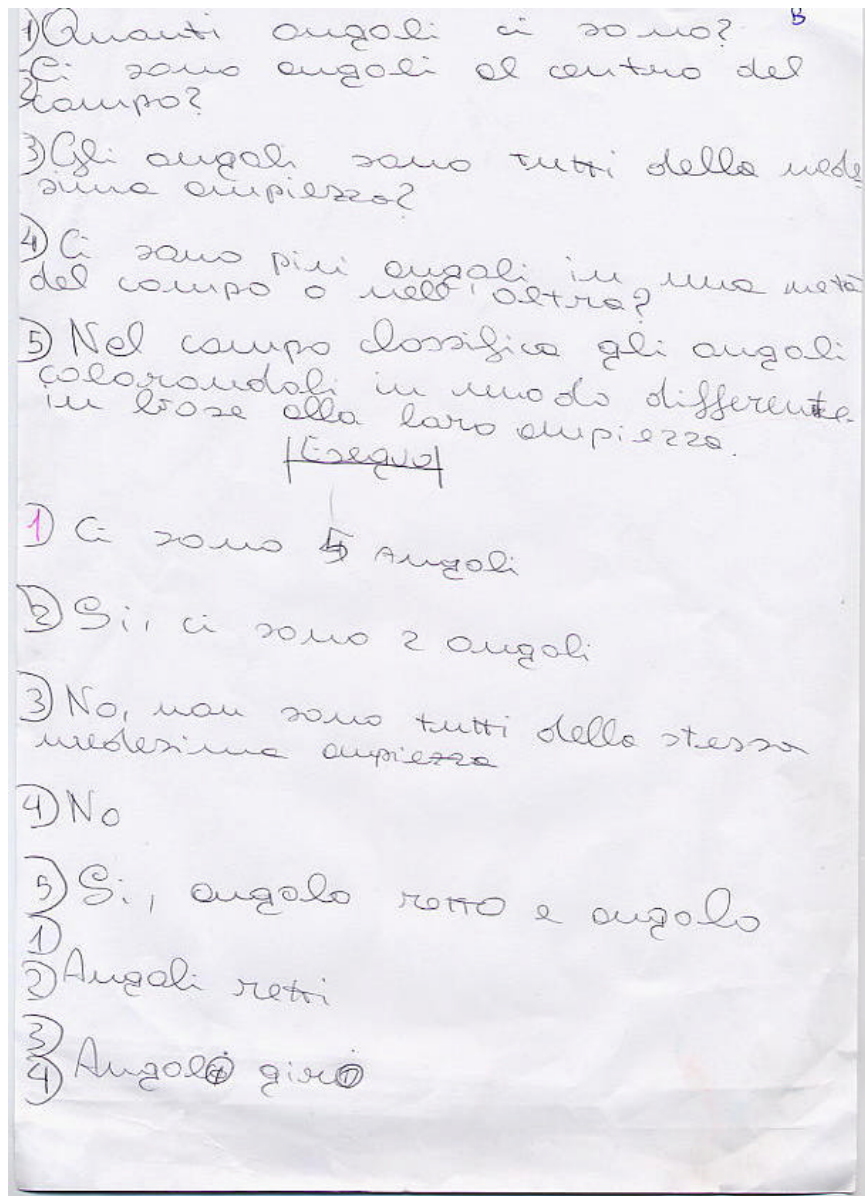 B
1) Quanti angoli ci sono?
2) Ci sono angoli al centro del
campo?
3) Gli angoli sono tutti della mede
sima ampiezza?
4) Ci sono più angoli in una metà
del campo o nell'altra?
5) Nel campo classifica gli angoli
colorandoli in modo differente
in base alla loro ampiezza.
Eseguo
1) Ci sono 5 Angoli
2) Si, ci sono 2 angoli
3) No, non sono tutti della stessa
medesima ampiezza
4) No
5) Si, angolo retto e angolo
1)
2) Angoli retti
3)
4) Angolo giro